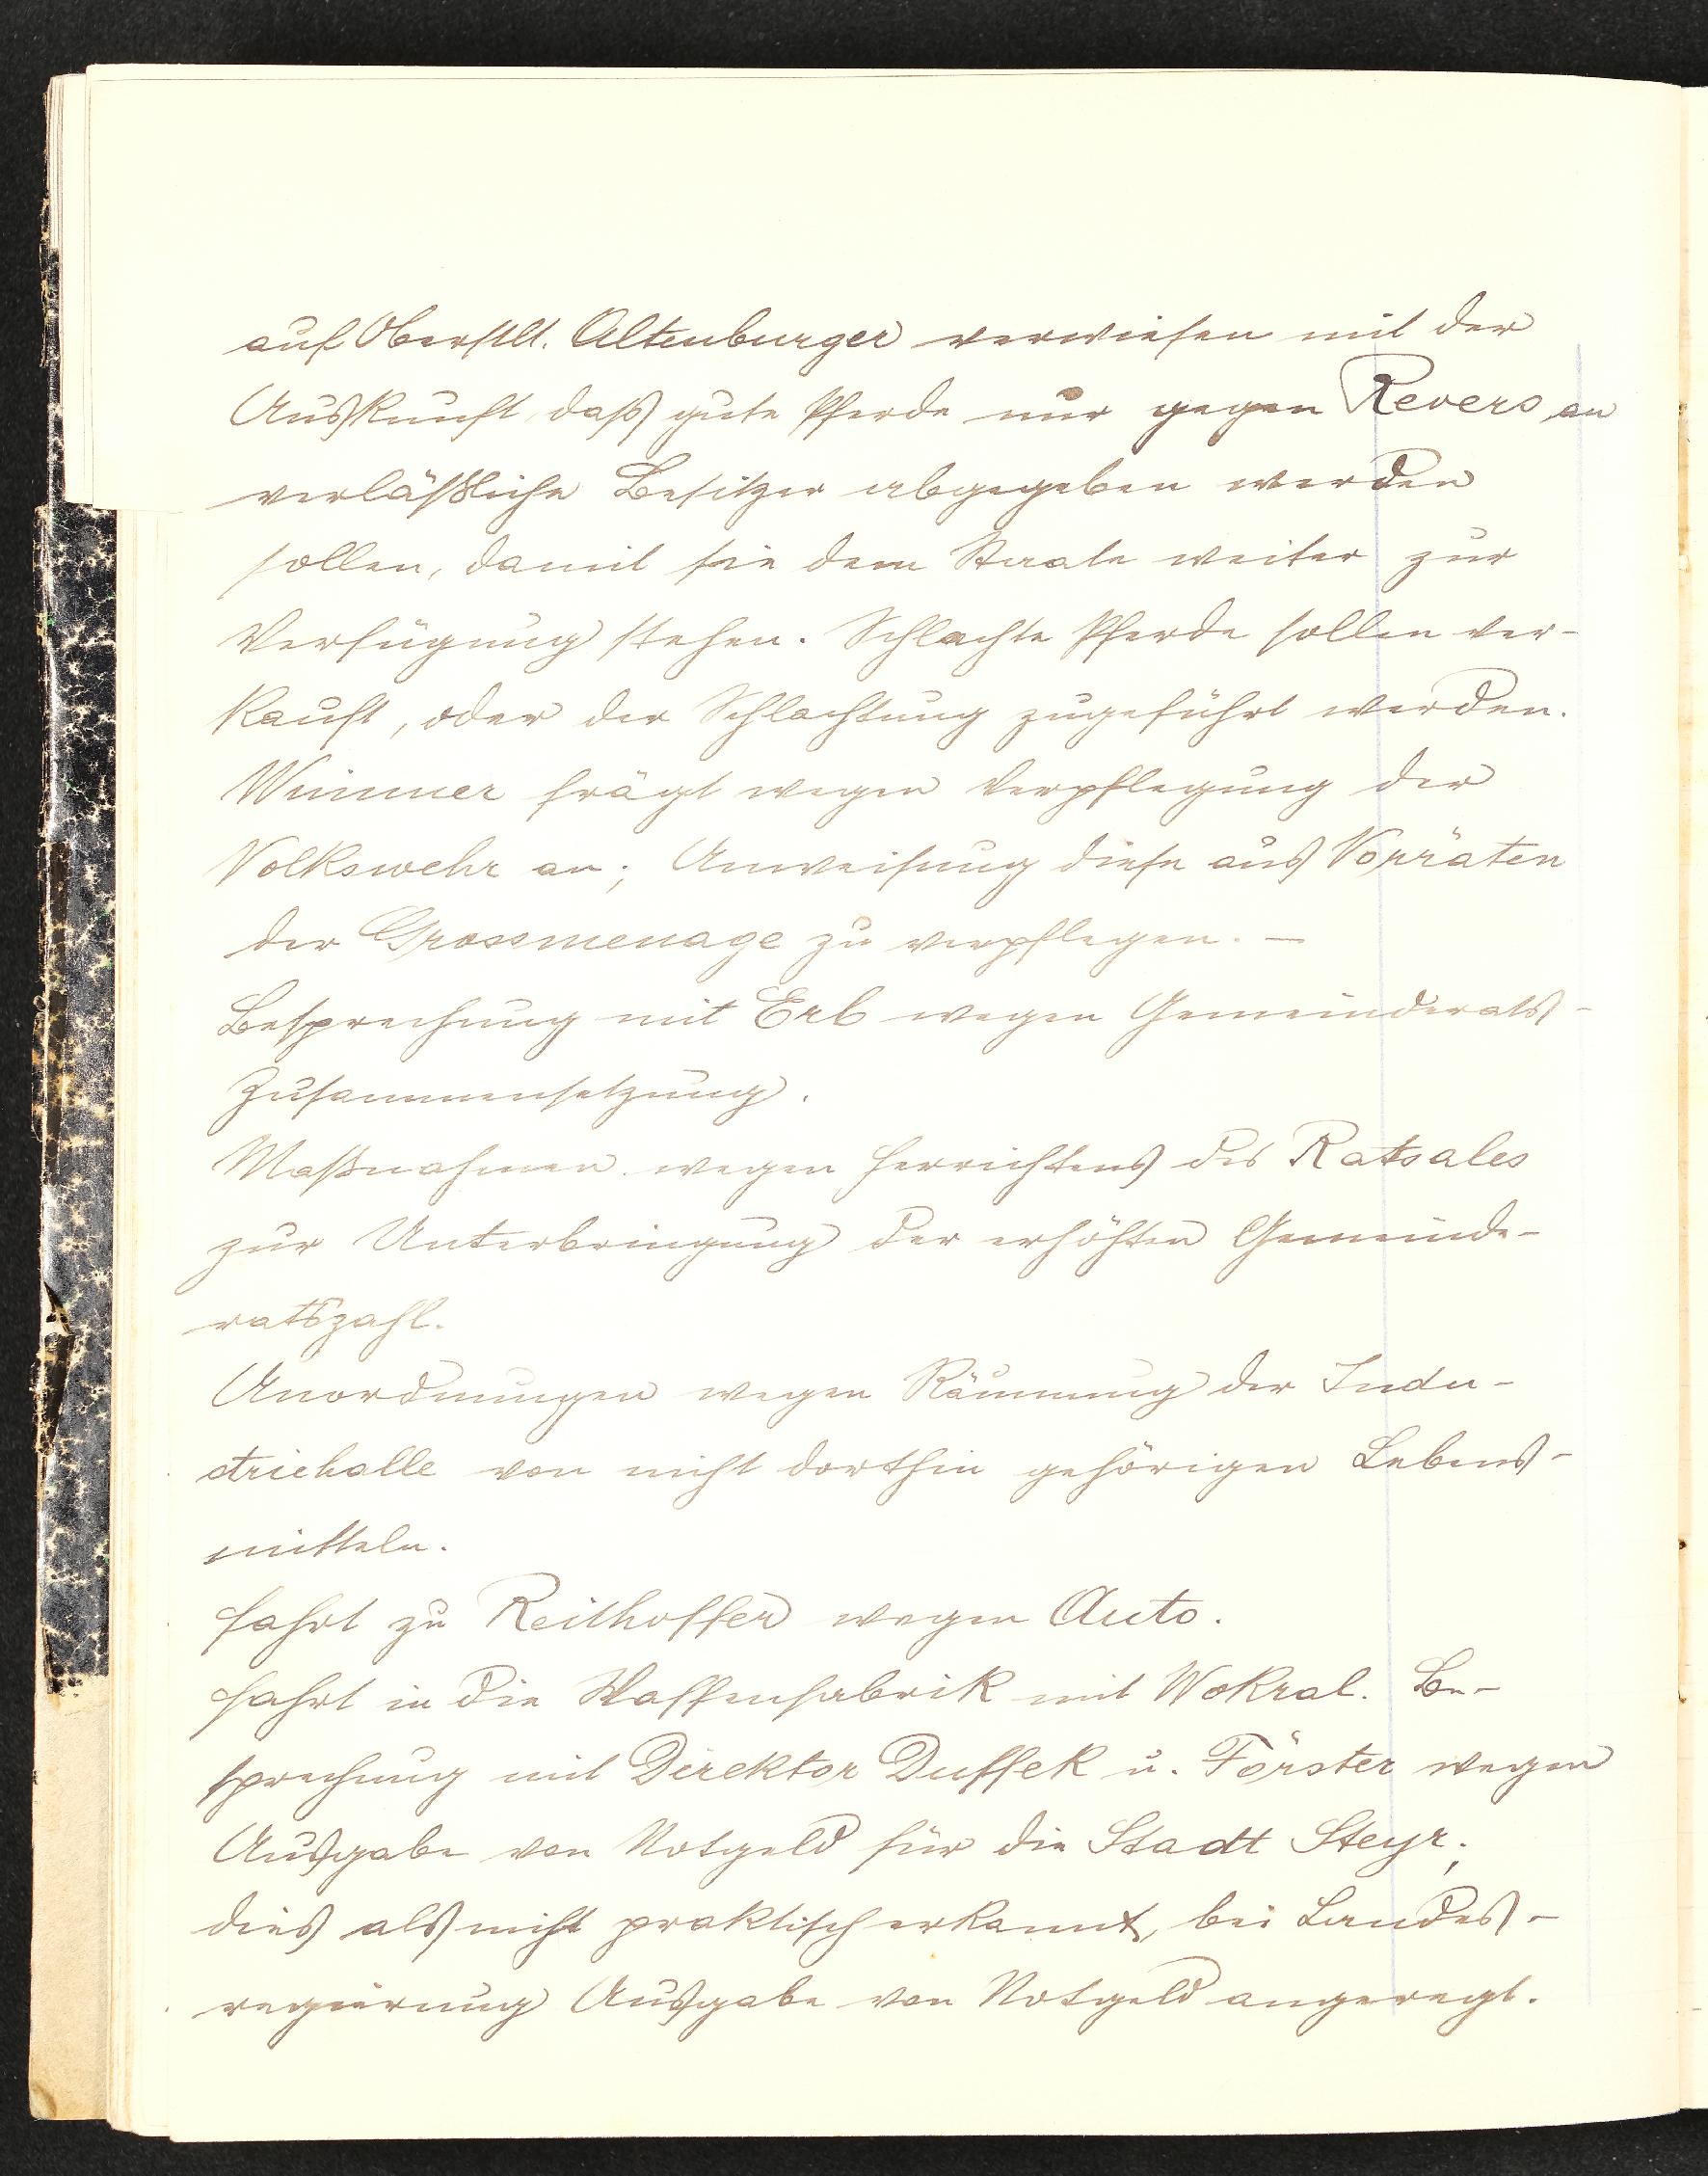 auf Oberstlt. Altenburger verwiesen mit der
Auskunft, daß gute Pferde nur gegen Revers an
verläßliche Besitzer abgegeben werden
sollen, damit sie dem Staate weiter zur
Verfügung stehen. Schlachte Pferde sollen ver-
kauft, oder der Schlachtung zugeführt werden.
Wimmer frägt wegen Verpflegung der
Volkswehr an; Anweisung diese aus Vorräten
der Grossmenage zu verpflegen. —
Besprechung mit Erb wegen Gemeinderats-
Zusammensetzung.
Maßnahmen wegen Herrichtens des Ratsales
zur Unterbringung der erhöhten Gemeinde-
ratszahl.
Anordnungen wegen Räumung der Indu-
striehalle von nicht dorthin gehörigen Lebens-
mitteln.
Fahrt zu Reithoffer wegen Auto.
Fahrt in die Waffenfabrik mit Wokral. Be-
sprechung mit Direktor Duffek u. Förster wegen
Ausgabe von Notgeld für die Stadt Steyr;
dies als nicht praktisch erkannt, bei Landes-
regierung Ausgabe von Notgeld angeregt.